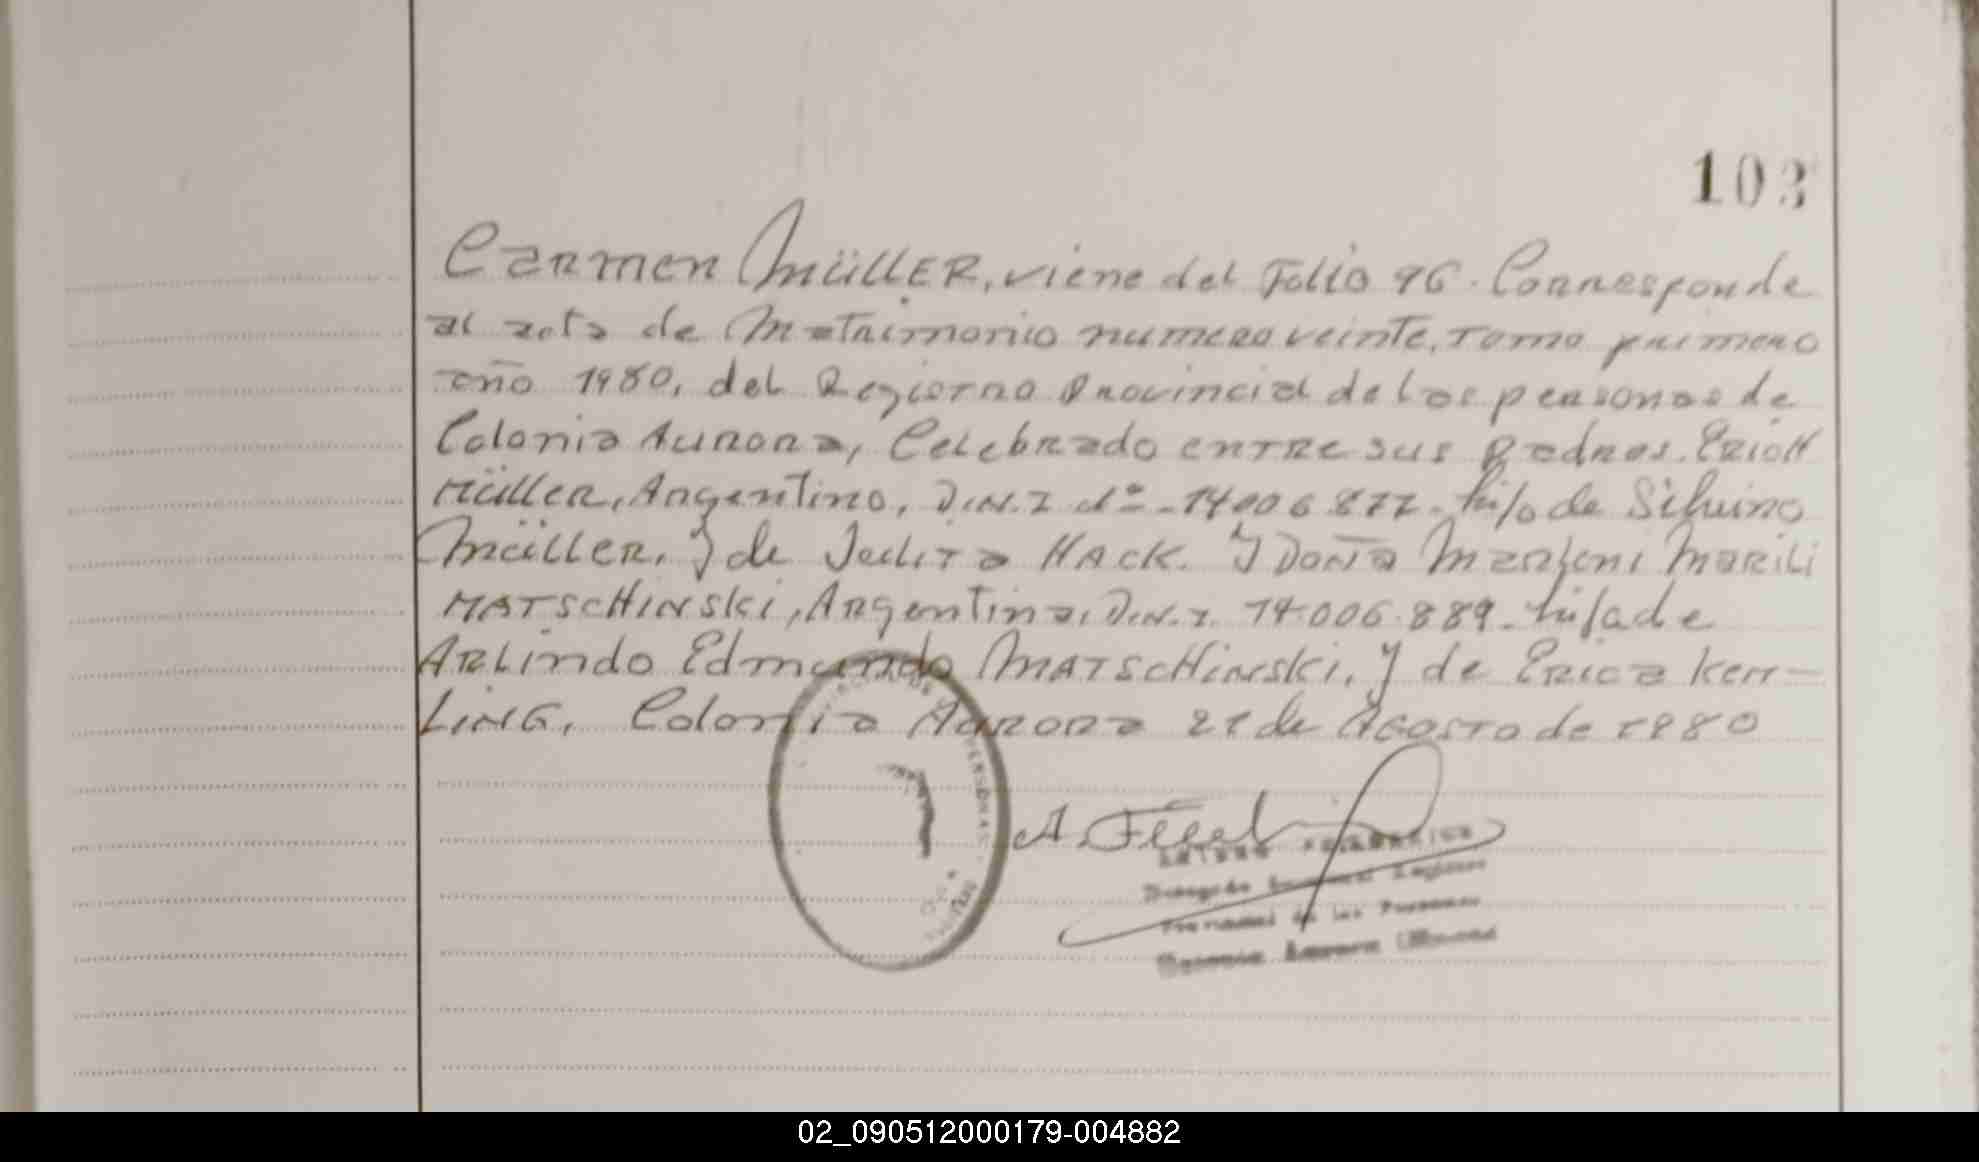 103
Carmen MüllER, viene del Folio 96. Corresponde
al acta de Matrimonio numero veinte, Tomo primero
año 1980, del Registro Provincial de las personas de
Colonia Aurora, Celebrado entre sus Padres. Erich
Müller, Argentino, D.N.I Nº 14006.877. hijo de Siluino
Müller, y de Judita HACK. y DoÑa Marleni Marili
MATSCHINSki, Argentina, D.N.I. 14.006.889. hija de
ARLindo Edmundo MATSCHinski, y de Erica Kerr-
LiNG, Colonia Aurora 21 de Agosto de 1980
PERSONAS
de las Personas
Aurora
02_090512000179-004882